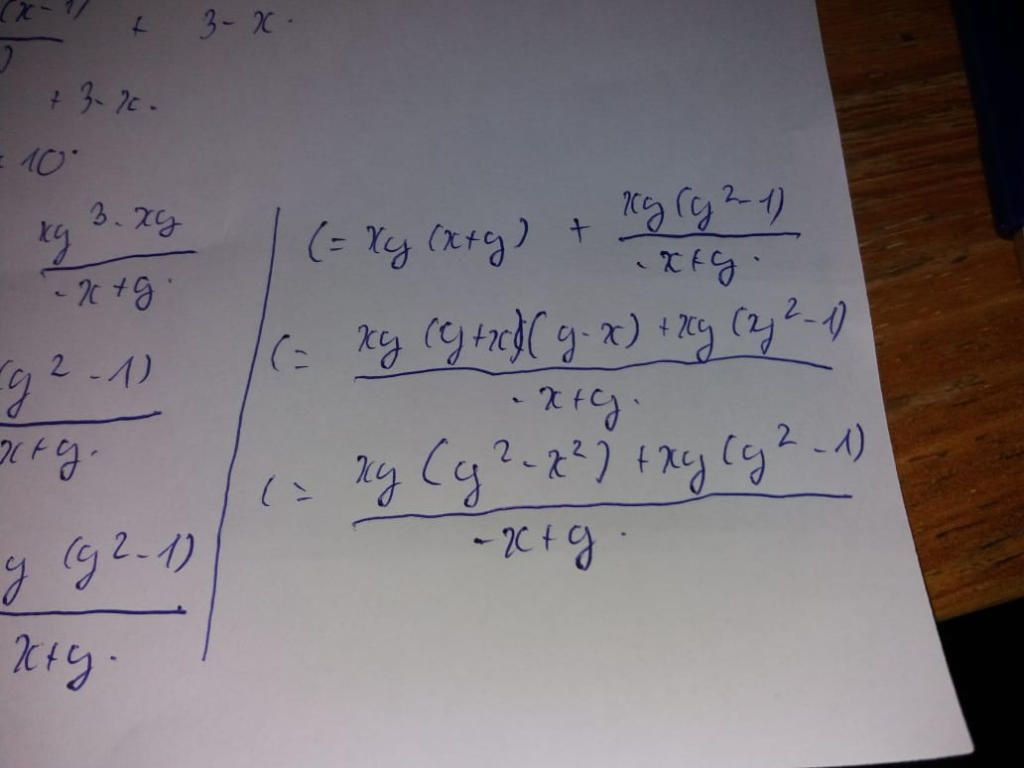 (x-1) + 3-x.
+ 3-x.
10.
xy³-xy / -x+y.
(y²-1) / x+y.
y (y²-1) / x+y.
(= xy (x+y) + xy(y²-1) / -x+y.
(= xy (y+x)(y-x) + xy (y²-1) / -x+y.
(= xy (y²-x²) + xy (y²-1) / -x+y.